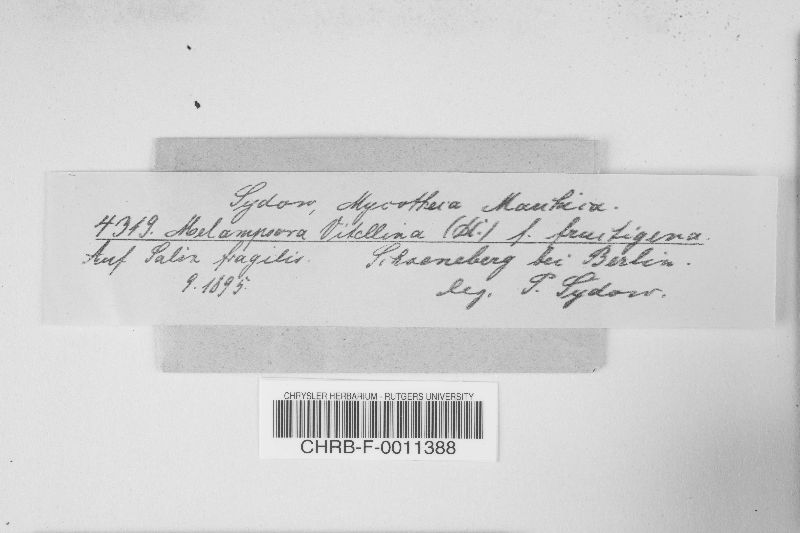 Sydow, Mycotheca Marchica.
4319. Melampsora Vitellina (DC.) f. fructigena.
Auf Salix fragilis. Schoeneberg bei Berlin.
9. 1895. leg. P. Sydow.
CHRYSLER HERBARIUM - RUTGERS UNIVERSITY
CHRB-F-0011388